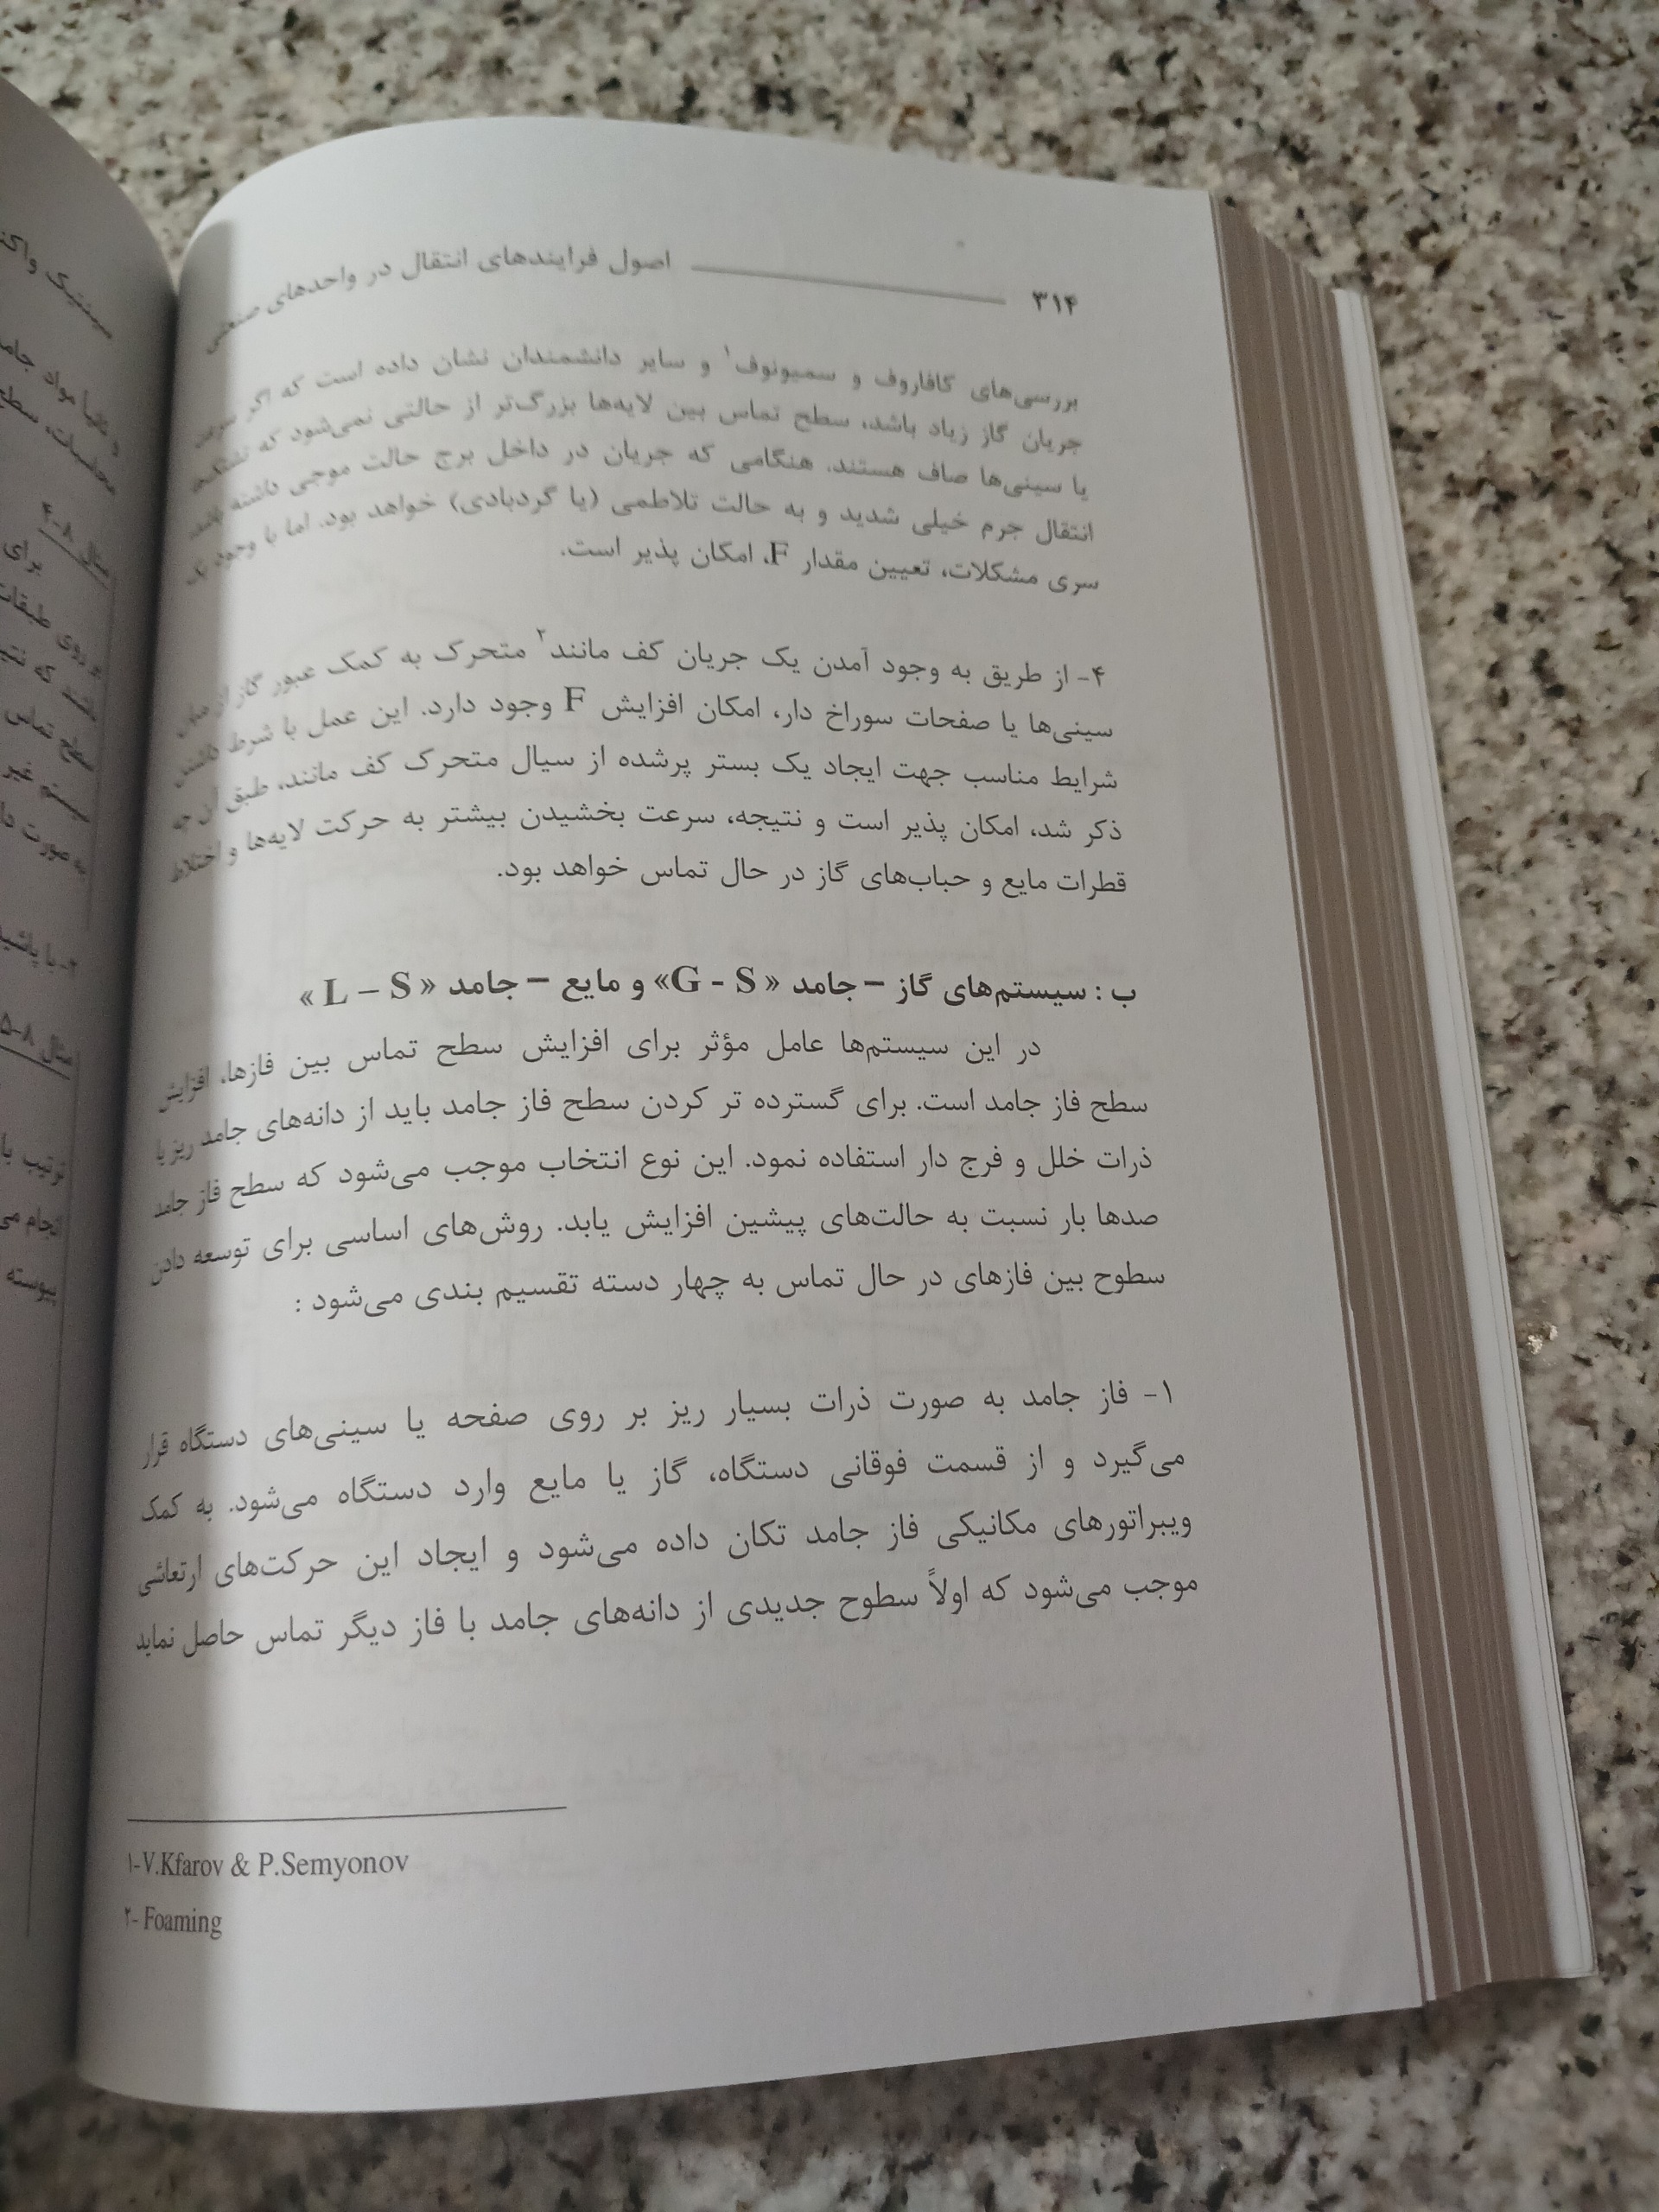 ۳۱۴ اصول فرایندهای انتقال در واحدهای صنعتی
بررسی‌های کافاروف و سمیونوف۱ و سایر دانشمندان نشان داده است که اگر سرعت
جریان گاز زیاد باشد، سطح تماس بین لایه‌ها بزرگ‌تر از حالتی نمی‌شود که
یا سینی‌ها صاف هستند. هنگامی که جریان در داخل برج حالت موجی داشته باشد،
انتقال جرم خیلی شدید و به حالت تلاطمی (یا گردبادی) خواهد بود. اما با وجود یک
سری مشکلات، تعیین مقدار F، امکان پذیر است.
۴- از طریق به وجود آمدن یک جریان کف مانند۲ متحرک به کمک عبور گاز از میان
سینی‌ها یا صفحات سوراخ دار، امکان افزایش F وجود دارد. این عمل با شرط داشتن
شرایط مناسب جهت ایجاد یک بستر پرشده از سیال متحرک کف مانند، طبق آن چه
ذکر شد، امکان پذیر است و نتیجه، سرعت بخشیدن بیشتر به حرکت لایه‌ها و اختلاط
قطرات مایع و حباب‌های گاز در حال تماس خواهد بود.
ب : سیستم‌های گاز – جامد « G - S» و مایع – جامد « L – S »
در این سیستم‌ها عامل مؤثر برای افزایش سطح تماس بین فازها، افزایش
سطح فاز جامد است. برای گسترده تر کردن سطح فاز جامد باید از دانه‌های جامد ریز یا
ذرات خلل و فرج دار استفاده نمود. این نوع انتخاب موجب می‌شود که سطح فاز جامد
صدها بار نسبت به حالت‌های پیشین افزایش یابد. روش‌های اساسی برای توسعه دادن
سطوح بین فازهای در حال تماس به چهار دسته تقسیم بندی می‌شود :
۱- فاز جامد به صورت ذرات بسیار ریز بر روی صفحه یا سینی‌های دستگاه قرار
می‌گیرد و از قسمت فوقانی دستگاه، گاز یا مایع وارد دستگاه می‌شود. به کمک
ویبراتورهای مکانیکی فاز جامد تکان داده می‌شود و ایجاد این حرکت‌های ارتعاشی
موجب می‌شود که اولاً سطوح جدیدی از دانه‌های جامد با فاز دیگر تماس حاصل نماید
۱-V.Kfarov & P.Semyonov
۲- Foaming
و ثانیا مواد جامد
مثال ۸-۴
برای
مثال ۸-۵
ترتیب با
انجام می
پیوسته